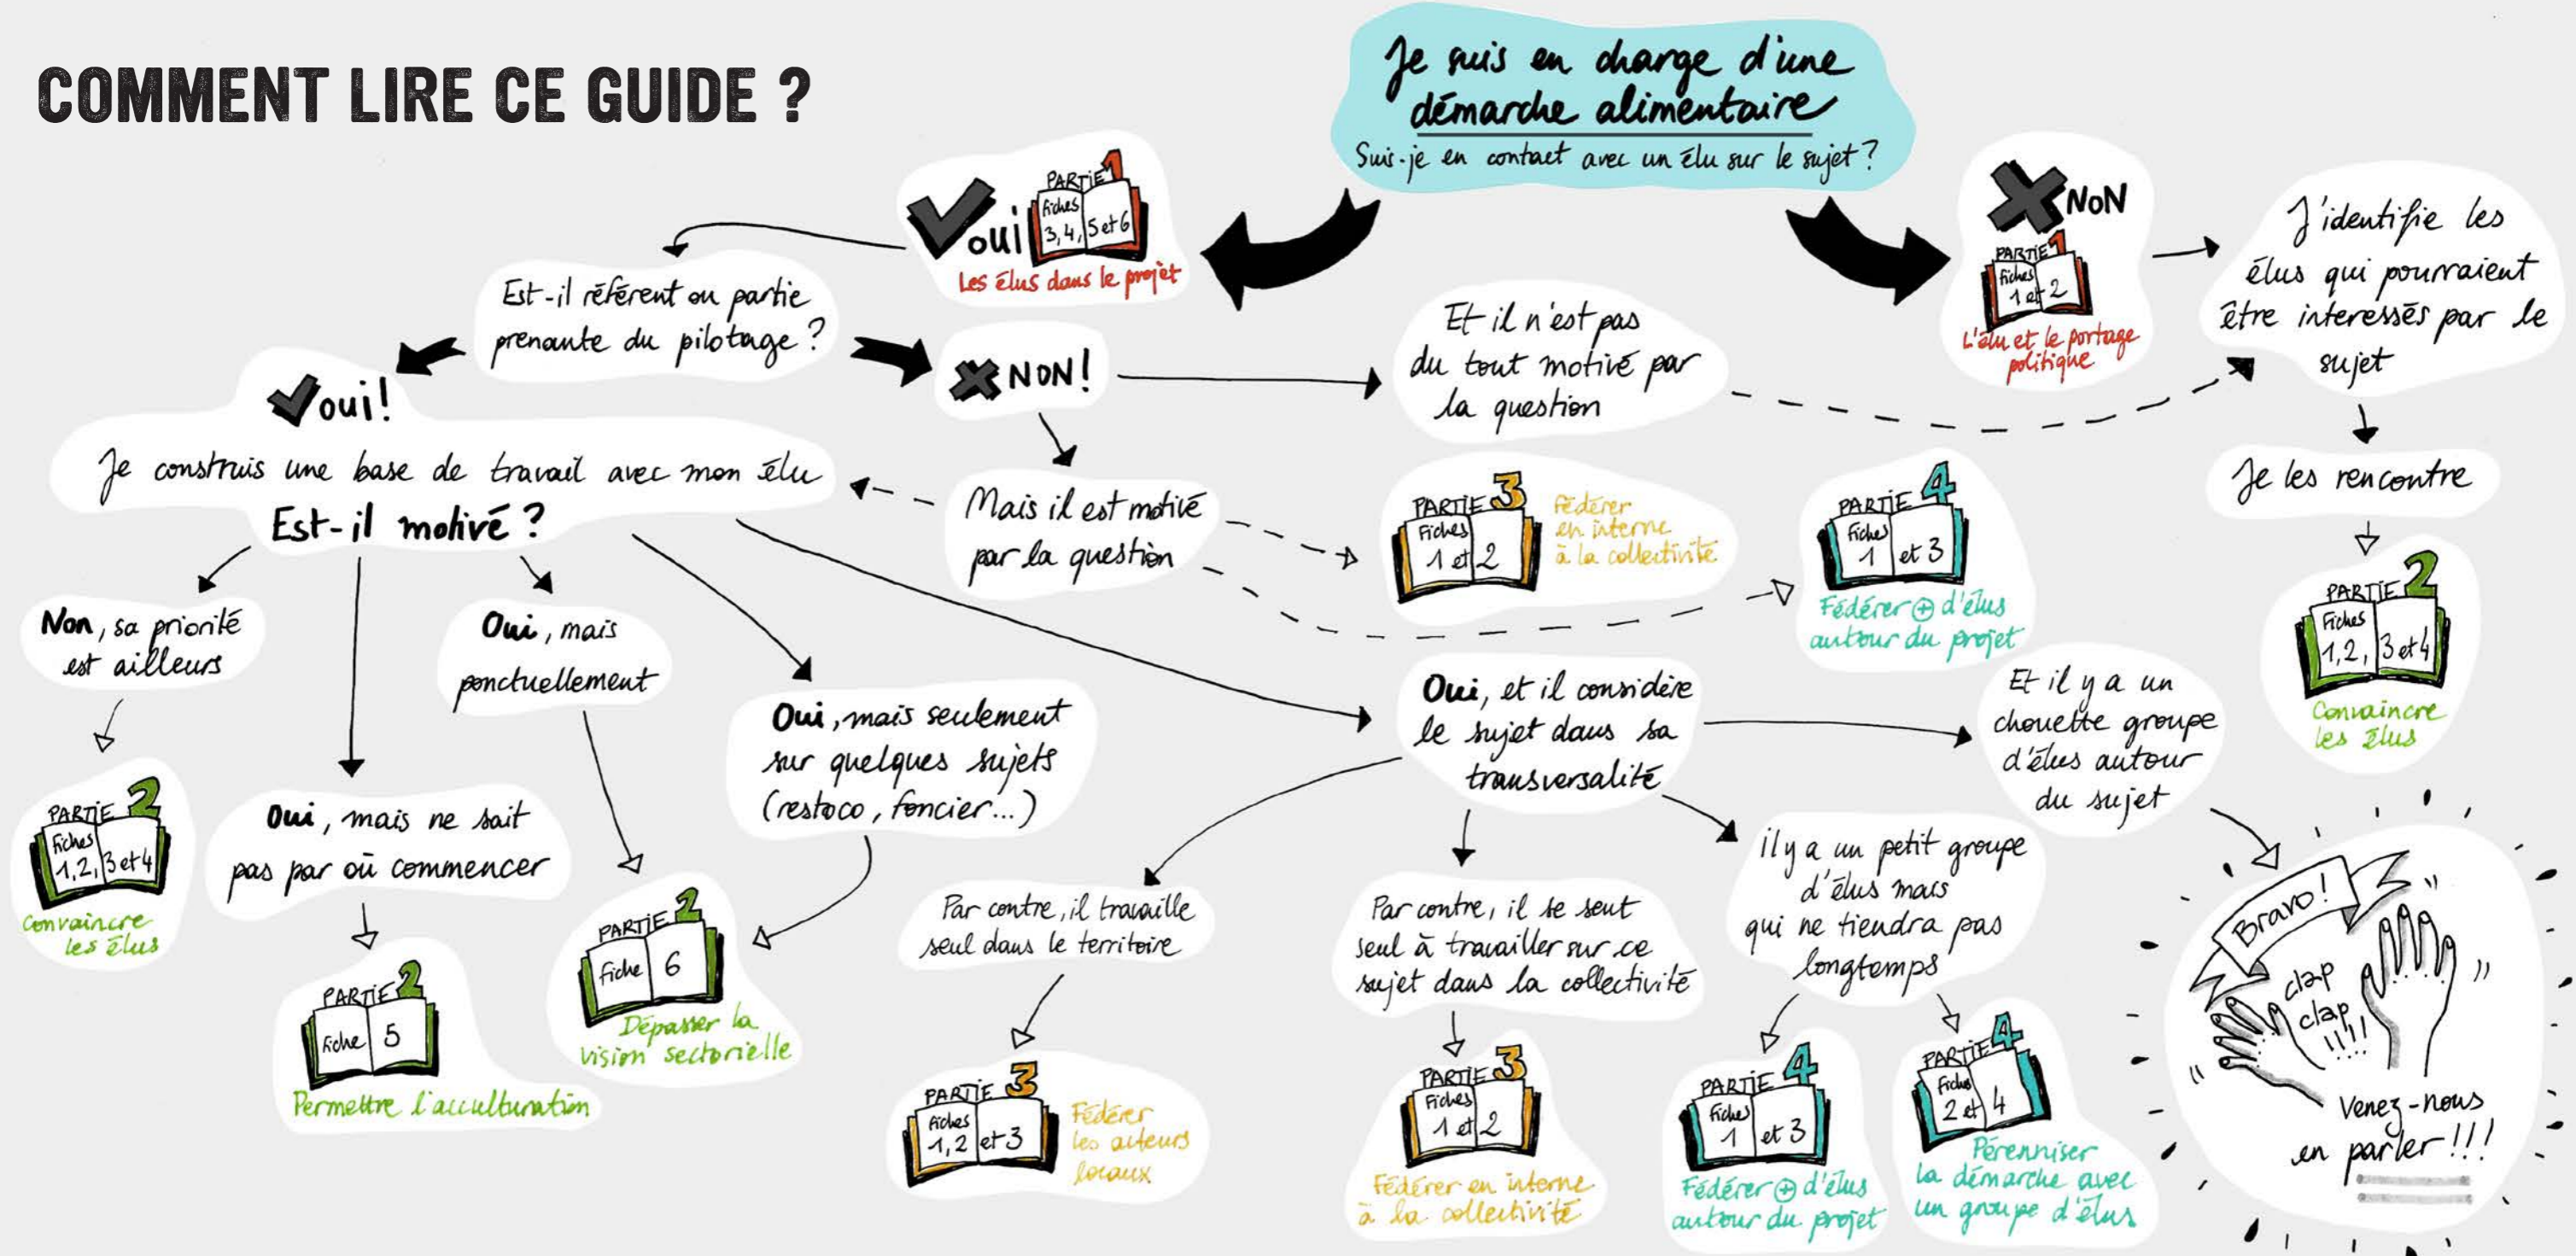 COMMENT LIRE CE GUIDE ?
Je suis en charge d'une
démarche alimentaire
Suis-je en contact avec un élu sur le sujet ?
oui
PARTIE 1
Fiches
3, 4, 5 et 6
Les élus dans le projet
NON
PARTIE 1
Fiches
1 et 2
L'élu et le portage
politique
J'identifie les
élus qui pourraient
être interessés par le
sujet
Je les rencontre
PARTIE 2
Fiches
1, 2, 3 et 4
Convaincre
les élus
Est-il référent ou partie
prenante du pilotage ?
oui !
Je construis une base de travail avec mon élu
Est-il motivé ?
NON !
Et il n'est pas
du tout motivé par
la question
Mais il est motivé
par la question
PARTIE 3
Fiches
1 et 2
Fédérer
en interne
à la collectivité
PARTIE 4
Fiches
1 et 3
Fédérer + d'élus
autour du projet
Non, sa priorité
est ailleurs
PARTIE 2
Fiches
1, 2, 3 et 4
Convaincre
les élus
Oui, mais ne sait
pas par où commencer
PARTIE 2
Fiche 5
Permettre l'acculturation
Oui, mais
ponctuellement
Oui, mais seulement
sur quelques sujets
(restoco, foncier...)
PARTIE 2
Fiche 6
Dépasser la
vision sectorielle
Oui, et il considère
le sujet dans sa
transversalité
Par contre, il travaille
seul dans le territoire
PARTIE 3
Fiches
1, 2 et 3
Fédérer
les acteurs
locaux
Par contre, il se sent
seul à travailler sur ce
sujet dans la collectivité
PARTIE 3
Fiches
1 et 2
Fédérer en interne
à la collectivité
il y a un petit groupe
d'élus mais
qui ne tiendra pas
longtemps
PARTIE 4
Fiches
1 et 3
Fédérer + d'élus
autour du projet
PARTIE 4
Fiches
2 et 4
Pérenniser
la démarche avec
un groupe d'élus
Et il y a un
chouette groupe
d'élus autour
du sujet
Bravo !
clap
clap
!!!!
Venez-nous
en parler !!!